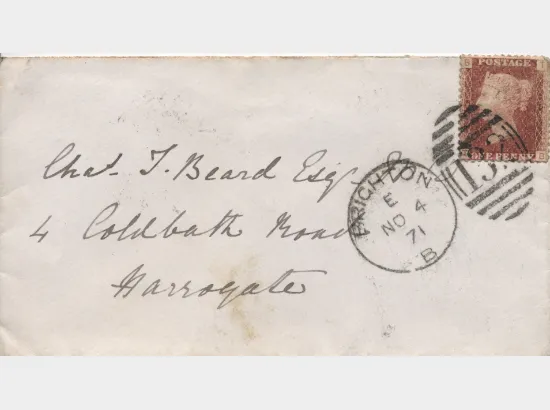 POSTAGE
ONE PENNY
Chas. T. Beard Esqr.
4 Coldbath Road
Harrogate
BRIGHTON
E
NO 4
71
B